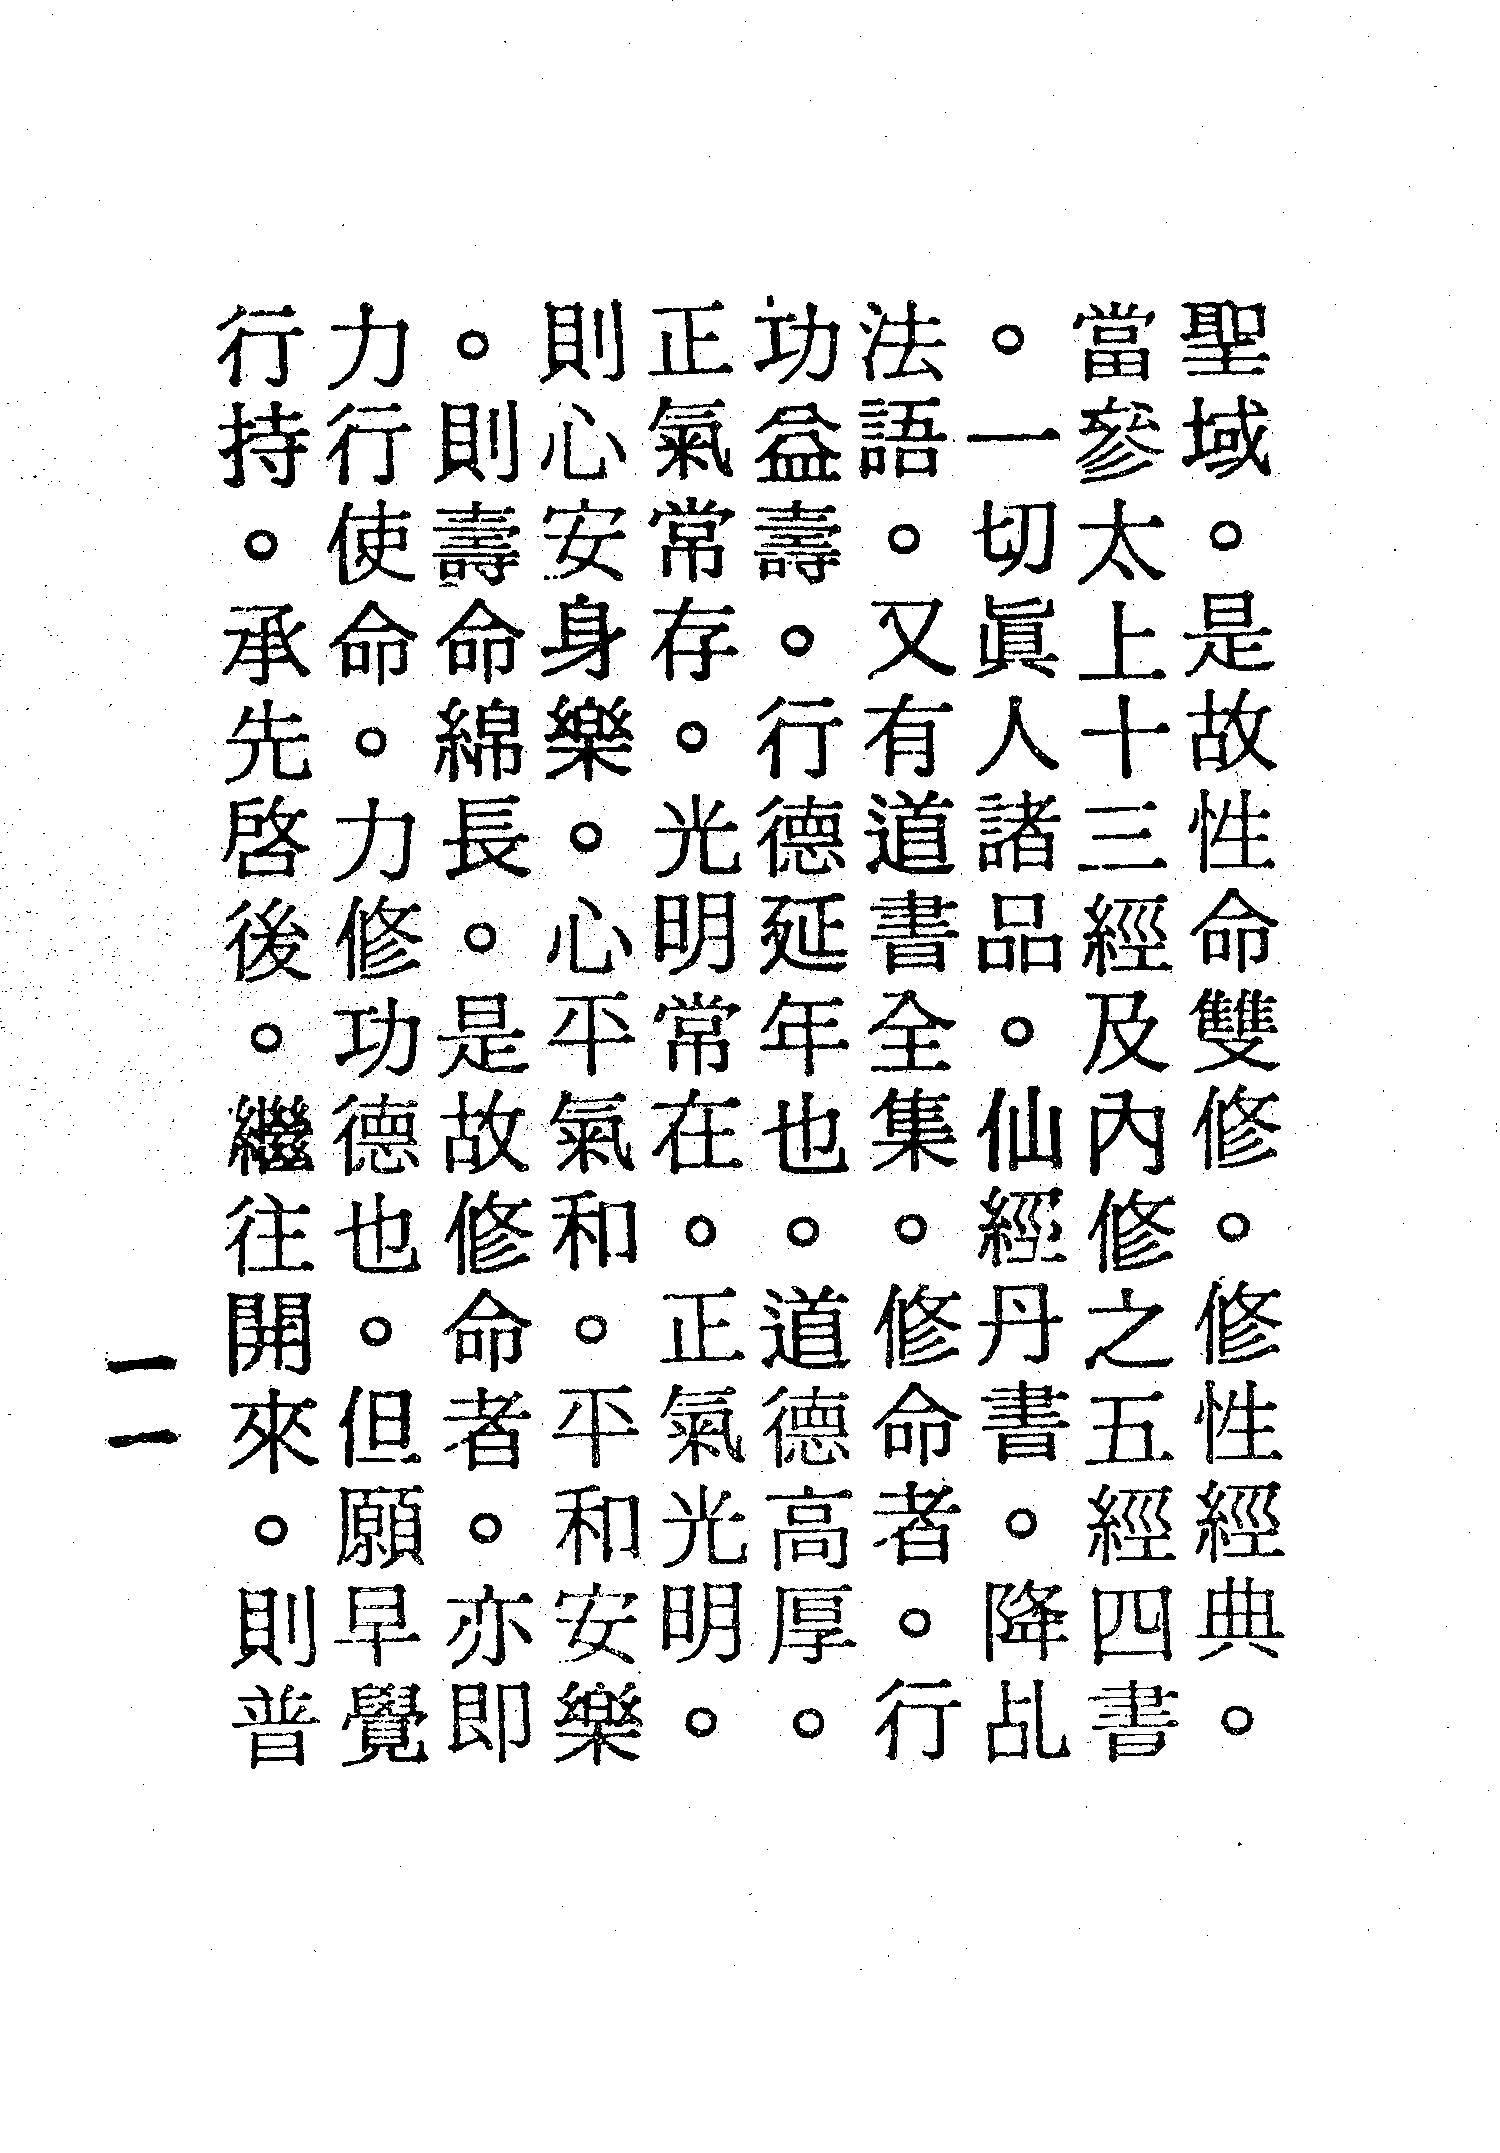 聖域。是故性命雙修。修性經典。
當參太上十三經及內修之五經四書
。一切眞人諸品。仙經丹書。降乩
法語。又有道書全集。修命者。行
功益壽。行德延年也。道德高厚。
正氣常存。光明常在。正氣光明。
則心安身樂。心平氣和。平和安樂
。則壽命綿長。是故修命者。亦即
力行使命。力修功德也。但願早覺
行持。承先啓後。繼往開來。則普
一一